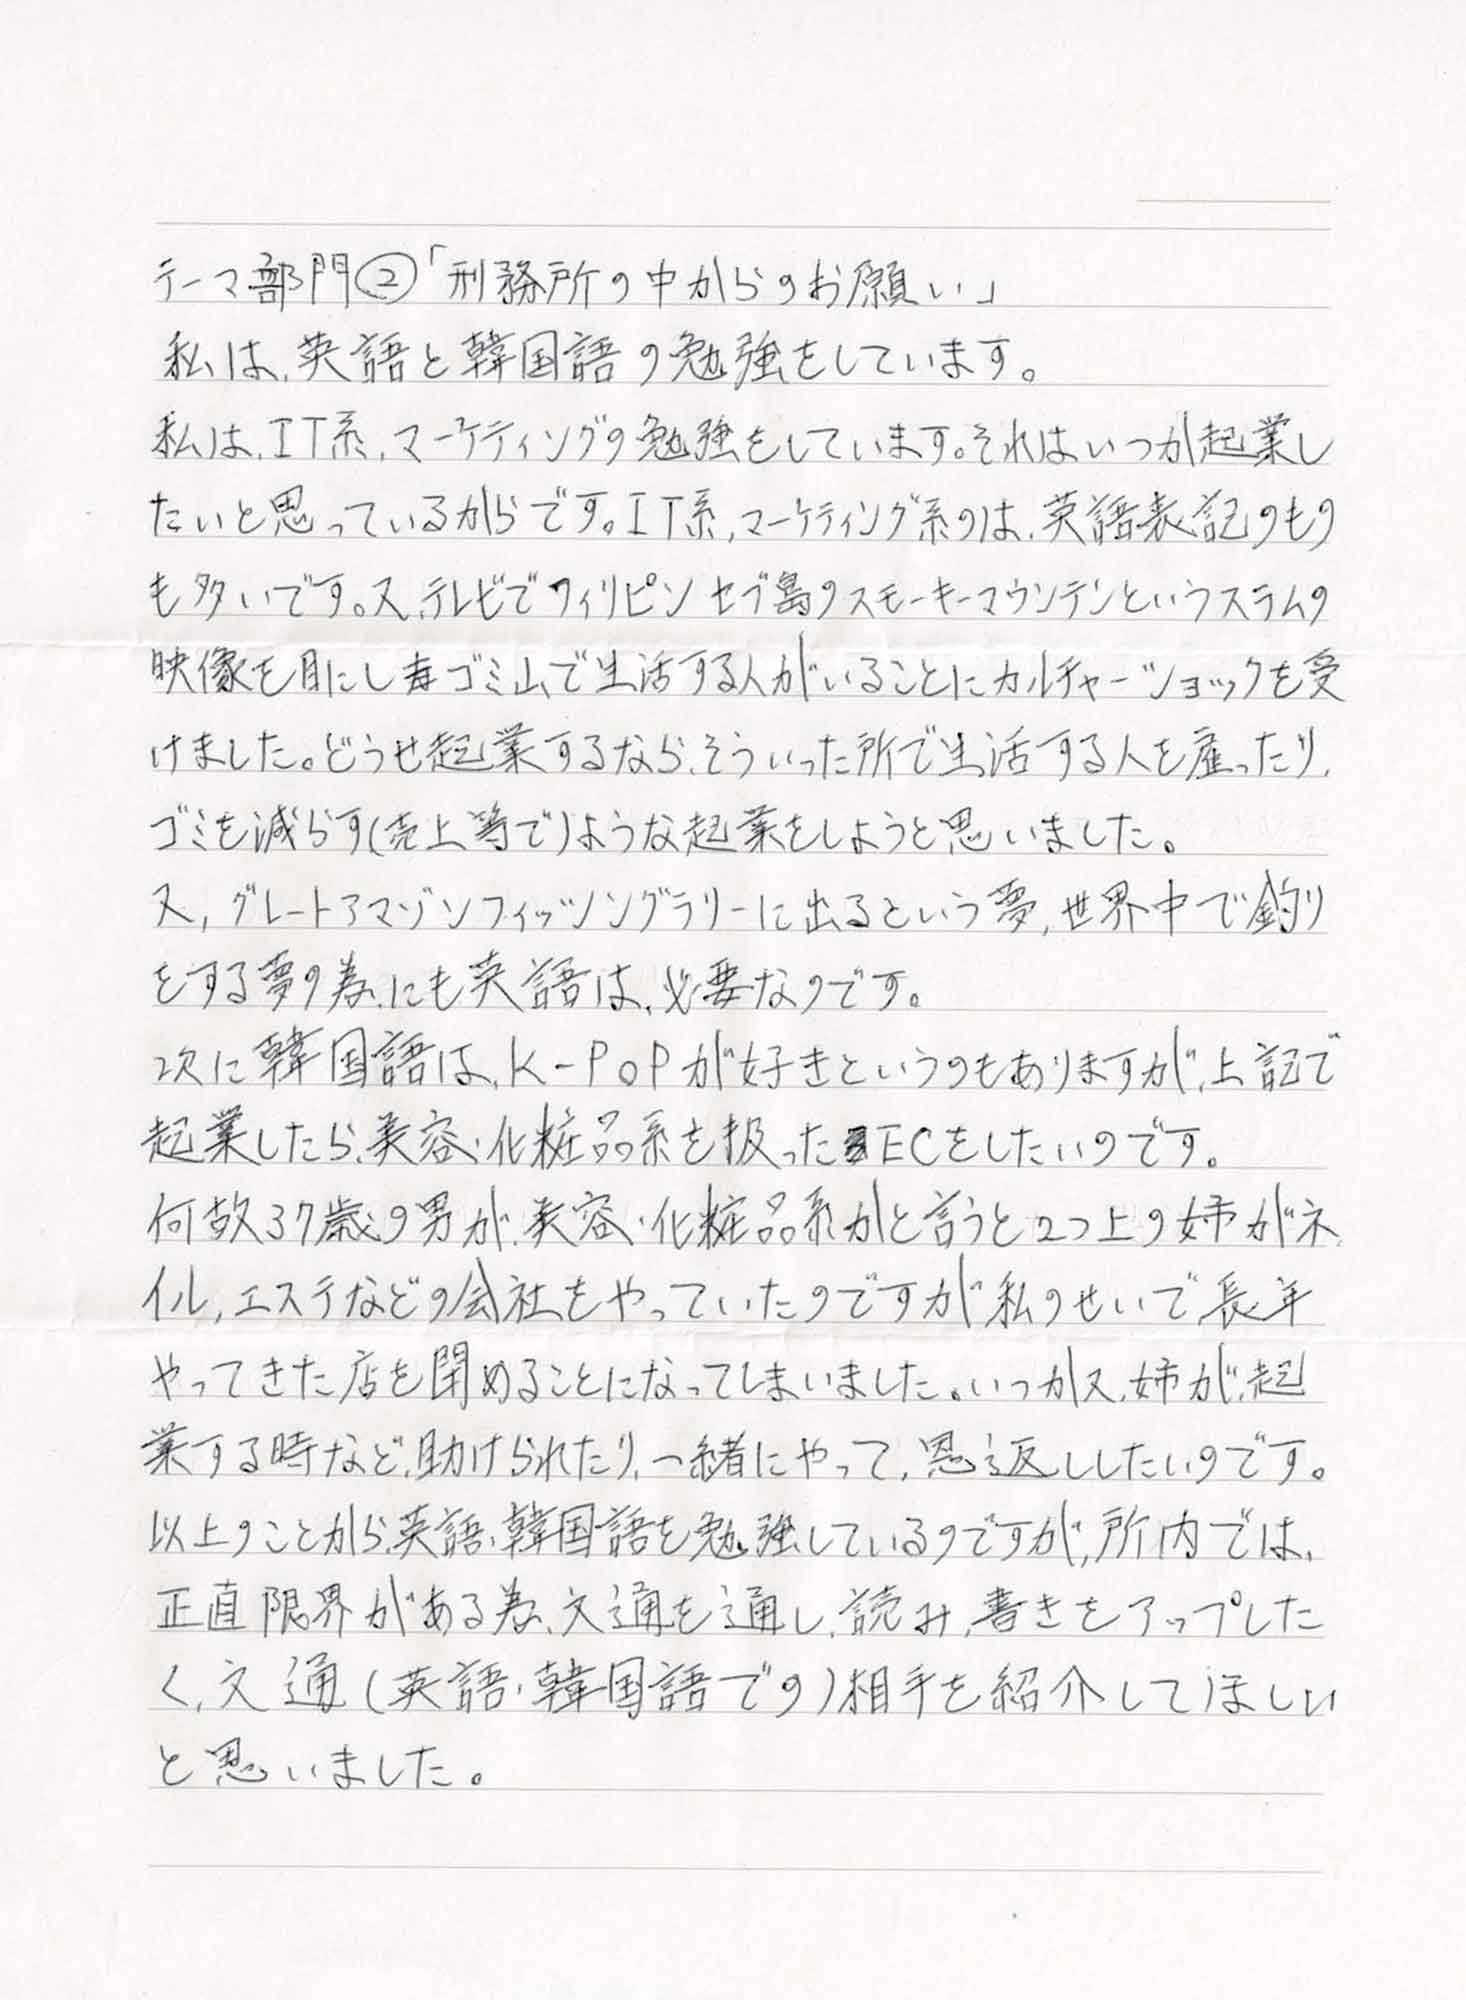 テーマ部門②「刑務所の中からのお願い」
私は、英語と韓国語の勉強をしています。
私は、IT系,マーケティングの勉強をしています。それはいつか起業し
たいと思っているからです。IT系,マーケティング系のは、英語表記のもの
も多いです。又、テレビでフィリピン セブ島のスモーキーマウンテンというスラムの
映像を目にし毎ゴミ山で生活する人がいることにカルチャーショックを受
けました。どうせ起業するなら、そういった所で生活する人を雇ったり、
ゴミを減らす(売上等で)ような起業をしようと思いました。
又,グレートアマゾンフィッシングラリーに出るという夢,世界中で釣り
をする夢の為、にも英語は、必要なのです。
次に韓国語は、K-POPが好きというのもありますが、上記で
起業したら、美容・化粧品系を扱ったECをしたいのです。
何故37歳の男が、美容・化粧品系かと言うと2つ上の姉がネ
イル,エステなどの会社をやっていたのですが私のせいで、長年
やってきた店を閉めることになってしまいました。いつか又、姉が、起
業する時など、助けられたり、一緒にやって,恩返ししたいのです。
以上のことから、英語・韓国語を勉強しているのですが、所内では、
正直限界がある為、文通を通し、読み,書きをアップした
く、文通(英語・韓国語での)相手を紹介してほしい
と思いました。